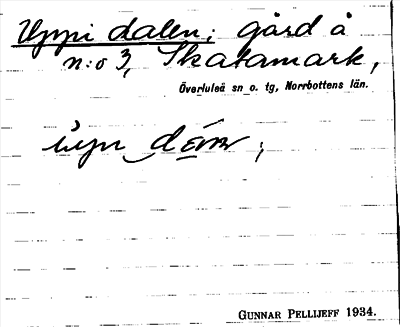 Uppi dalen; gård å
n:o 3, Skatamark,
Överluleå sn o. tg, Norrbottens län.
GUNNAR PELLIJEFF 1934.